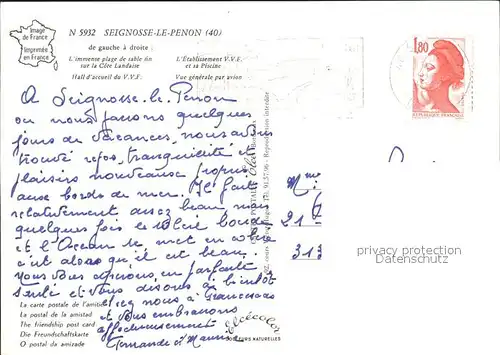 Image
de France
Imprimée
en France
N 5932 SEIGNOSSE-LE-PENON (40)
de gauche à droite :
L'immense plage de sable fin
sur la Côte Landaise
L'Établissement V.V.F.
et sa Piscine
Hall d'accueil du V.V.F.
Vue générale par avion
1,80
REPUBLIQUE FRANÇAISE
A Seignosse-le-Penon
ou nous passons quelques
jours de vacances, nous avons
trouvé repos, tranquilité et
plaisirs nouveaux propres
aux bords de mer. Il fait
relativement assez beau mais
quelques fois le soleil boude
et l'Océan se met en colère
c'est alors qu'il est beau.
Nous vous espérons en parfaite
santé et vous disons à bientôt
chez nous à
et vous embrassons
affectueusement
Fernande et
Mme
21
313
La carte postale de l'amitié
La postal de la amistad
The friendship post card
Die Freundschaftskarte
O postal da amizade
elcécolor
COULEURS NATURELLES
Reproduction interdite
privacy protection
Datenschutz